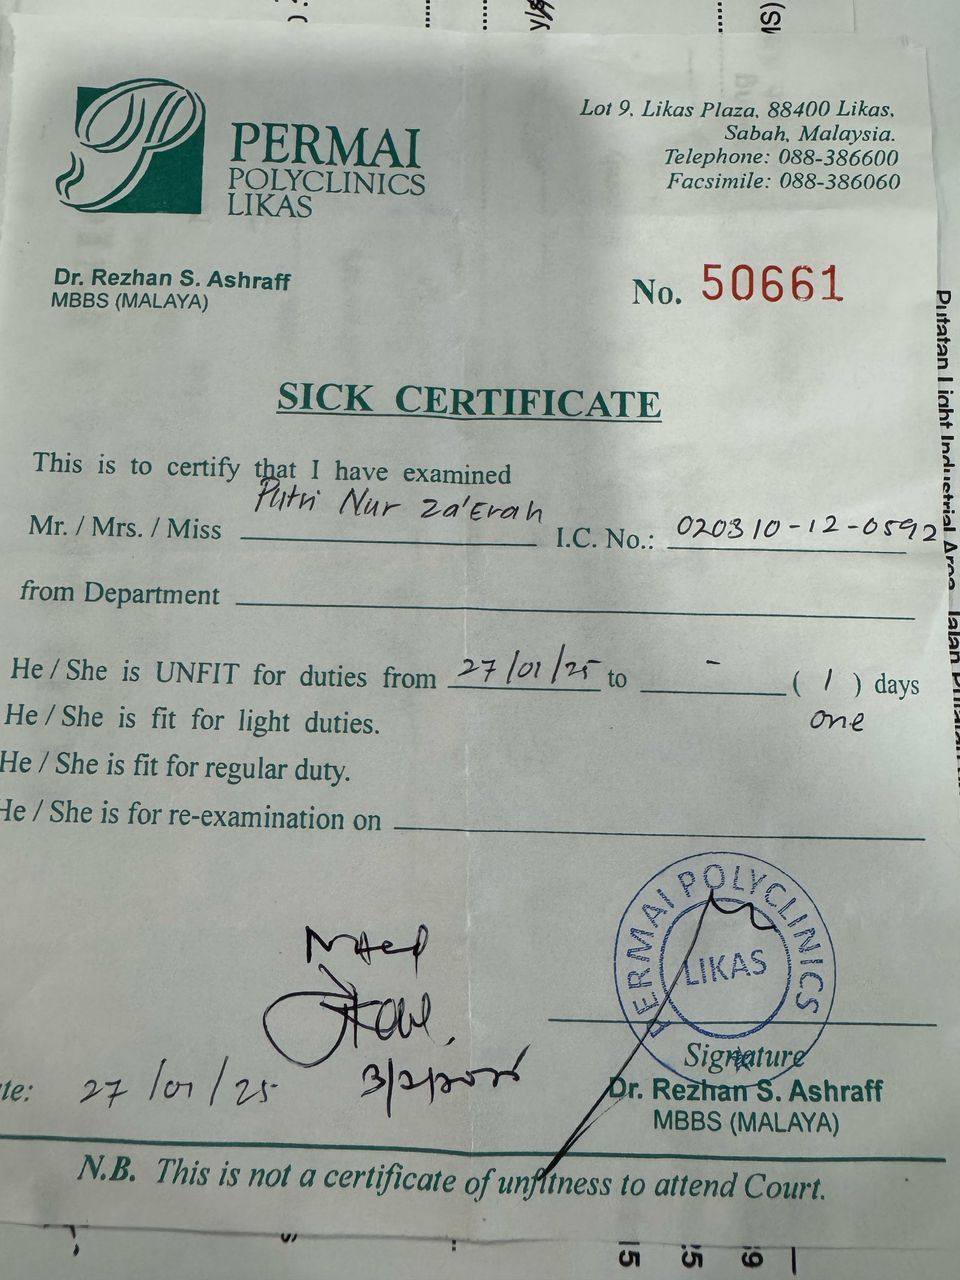 PERMAI
POLYCLINICS
LIKAS
Lot 9, Likas Plaza, 88400 Likas,
Sabah, Malaysia.
Telephone: 088-386600
Facsimile: 088-386060
Dr. Rezhan S. Ashraff
MBBS (MALAYA)
No. 50661
SICK CERTIFICATE
This is to certify that I have examined
Mr. / Mrs. / Miss Putri Nur Za'Erah I.C. No.: 020310-12-0592
from Department
He / She is UNFIT for duties from 27/01/25 to - ( 1 ) days
one
He / She is fit for light duties.
He / She is fit for regular duty.
He / She is for re-examination on
PERMAI POLYCLINICS
LIKAS
Signature
Dr. Rezhan S. Ashraff
MBBS (MALAYA)
te: 27/01/25
N.B. This is not a certificate of unfitness to attend Court.
Putatan Light Industrial Area